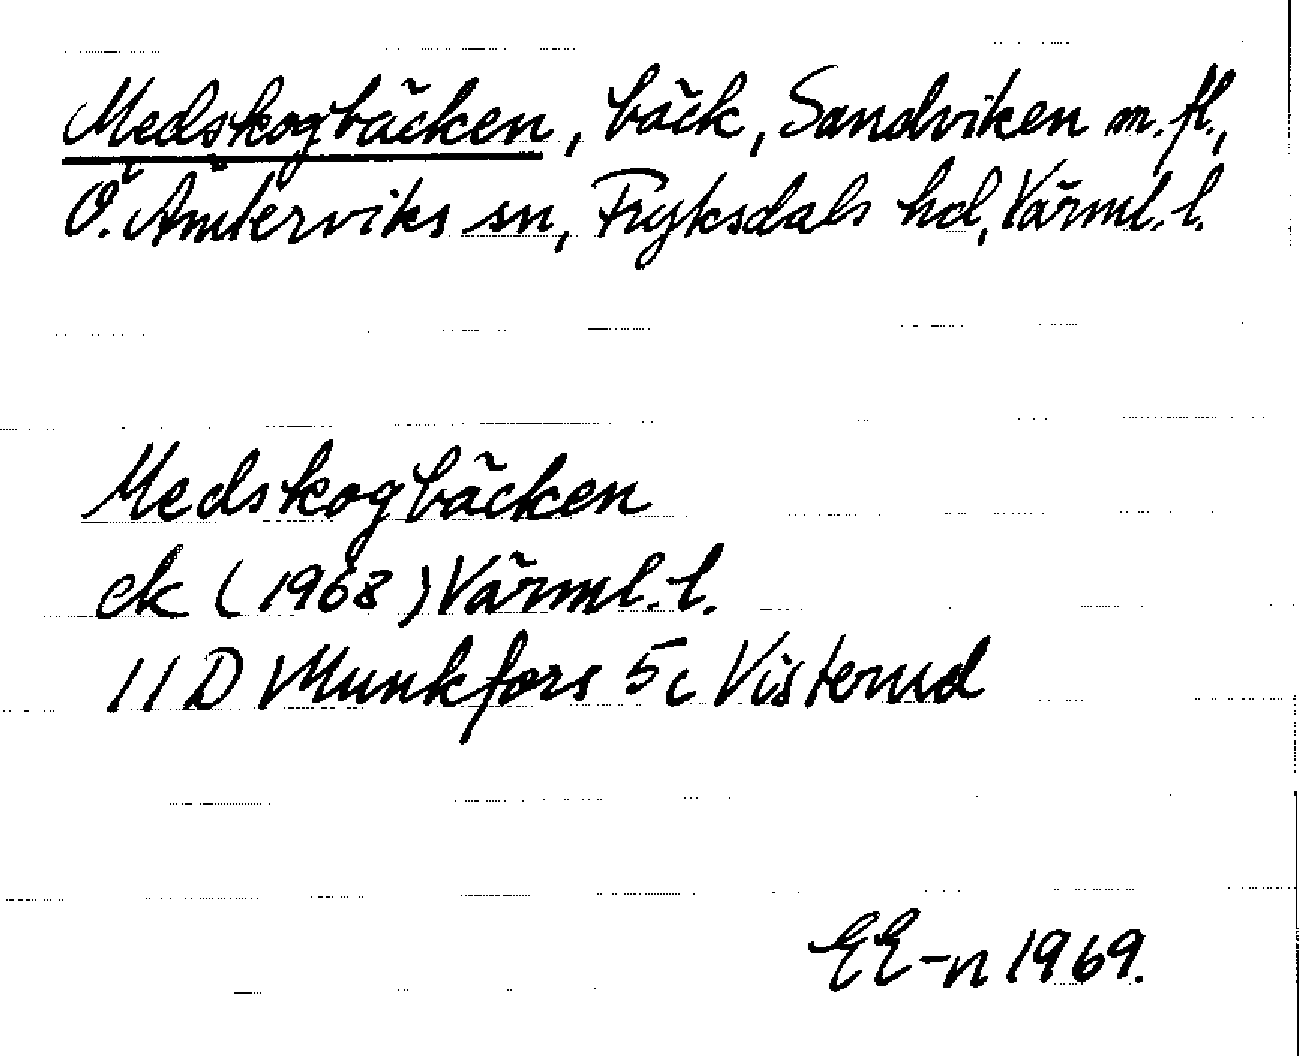 Medskogbäcken, bäck, Sandviken m.fl.,
Ö. Ämterviks sn, Fryksdals hd, Värml. l.
Medskogbäcken
ek (1968) Värml. l.
11 D Munkfors 5c Visterud
EE-n 1969.